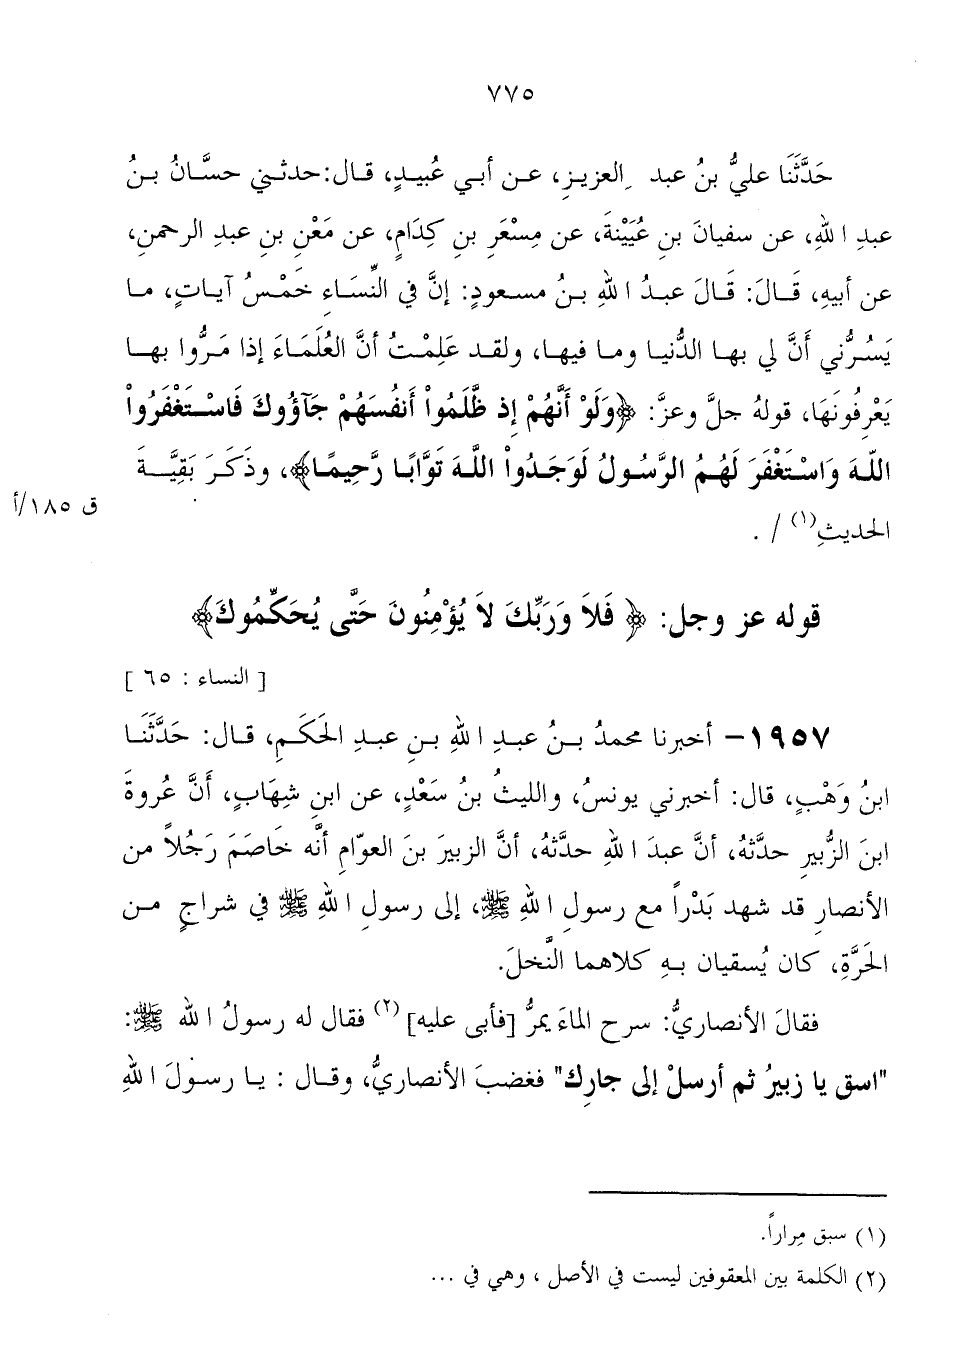 ٧٧٥
حَدَّثَنَا عليُّ بنُ عبد العزيزِ، عـن أبـي عُبيـدٍ، قـال: حدثنـي حسَّـانُ بـنُ
عبدِ اللهِ، عن سفيانَ بنِ عُيَيْنةَ، عن مِسْعَرِ بنِ كِدَامٍ، عن مَعْنِ بنِ عبدِ الرحمنِ،
عن أبيهِ، قَـالَ: قَـالَ عبـدُ اللهِ بـنُ مسـعودٍ: إنَّ في النِّسَـاءِ خَمْـسُ آيـاتٍ، مـا
يَسُـرُّني أَنَّ لي بهـا الدُّنيـا ومـا فيهـا، ولقـد عَلِمْـتُ أنَّ العُلَمَـاءَ إذا مَـرُّوا بهـا
يَعْرِفُونَهَا، قولهُ جلَّ وعزَّ: ﴿وَلَوْ أَنَّهُمْ إِذ ظَّلَمُواْ أَنفُسَهُمْ جَآؤُوكَ فَاسْـتَغْفَرُواْ
اللّهَ وَاسْـتَغْفَرَ لَهُـمُ الرَّسُـولُ لَوَجَـدُواْ اللّهَ تَوَّابًـا رَّحِيمًـا﴾، وذَكَـرَ بَقِيَّـةَ
ق ١٨٥/أ
الحديثِ(١) / .
قوله عز وجل: ﴿ فَلاَ وَرَبِّكَ لاَ يُؤْمِنُونَ حَتَّى يُحَكِّمُوكَ﴾
[ النساء : ٦٥ ]
١٩٥٧- أخبرنا محمدُ بـنُ عبـدِ اللهِ بـنِ عبـدِ الحَكَـمِ، قـال: حَدَّثَنَـا
ابنُ وَهْبٍ، قال: أخبرني يونسُ، والليثُ بنُ سَعْدٍ، عن ابنِ شِهَابٍ، أنَّ عُروةَ
ابنَ الزُّبيرِ حدَّثهُ، أنَّ عبدَ اللهِ حدَّثهُ، أنَّ الزبيرَ بنَ العوّامِ أنَّه خَاصَمَ رَجُلاً من
الأنصارِ قد شهد بَدْراً مع رسولِ اللهِ ﷺ، إلى رسولِ اللهِ ﷺ في شراجٍ مـن
الحَرَّةِ، كان يُسقيان بـهِ كلاهما النَّخلَ.
فقالَ الأنصاريُّ: سرح الماءَ يمرُّ [فأبى عليه](٢) فقال له رسولُ اللهِ ﷺ:
"اسق يا زبيرُ ثم أرسلْ إلى جارِك" فغضبَ الأنصاريُّ، وقـال : يـا رسـولَ اللهِ
(١) سبق مِراراً.
(٢) الكلمة بين المعقوفين ليست في الأصل ، وهي في ...